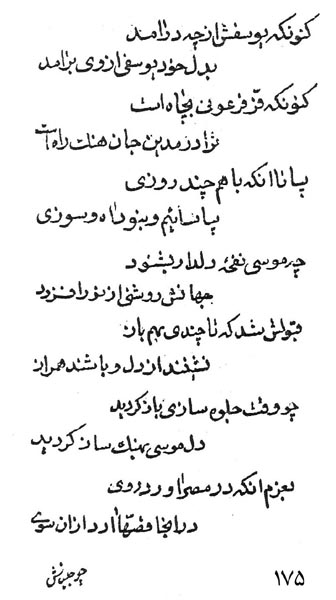 کنونکه یوسفش از چه درآمد
بدل خود یوسفی از وی برآمد
کنونکه قز فرعونی بچاه است
ترا در مدین جان هنک راه است
بیا تا آنکه با هم چند روزی
بیاسائیم و بنو داه و سوزی
چه موسی نغمه دلدار بشنود
جهانش روشنی از نور افزود
قبولش شد که تا چندی بهم باز
نشینند از دل و باشند همراز
چو وقت جلوه سازی باز کردید
دل موسی بهنک ساز کردید
بعزم آنکه در مصر آورد روی
در آنجا قصها آرد از آن سوی
۱۷۵